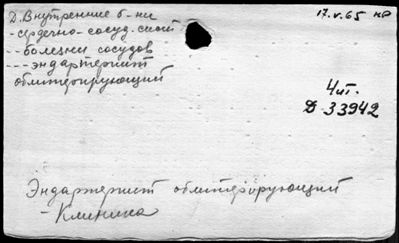 Д. Внутренние б-ни
17.V.65 нр
- сердечно-сосуд. сист
-- болезни сосудов
--- эндартериит
облитерирующий
Чит.
Д 33942
Эндартериит облитерирующий
- Клиника